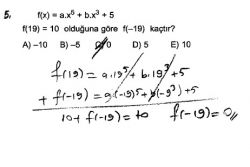 5. f(x) = a.x⁵ + b.x³ + 5
f(19) = 10 olduğuna göre f(–19) kaçtır?
A) –10 B) –5 C) 0 D) 5 E) 10
f(19) = a.19⁵ + b.19³ + 5
+ f(-19) = a.(-19)⁵ + b(-9³) + 5
10 + f(-19) = 10 f(-19) = 0